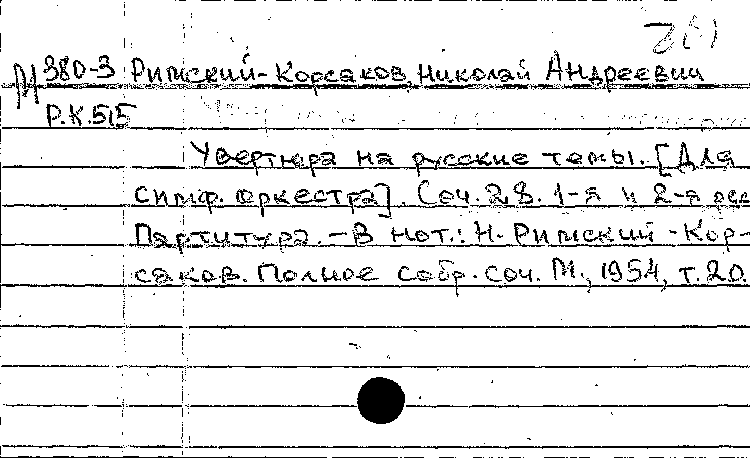 М 380-3 Римский-Корсаков, Николай Андреевич
Р.К.515
Увертюра на русские темы. [Для
симф. оркестра]. Соч. 28. 1-я и 2-я ред
Партитура. - В нот.: Н. Римский-Кор-
саков. Полное собр. соч. М., 1954, т. 20.